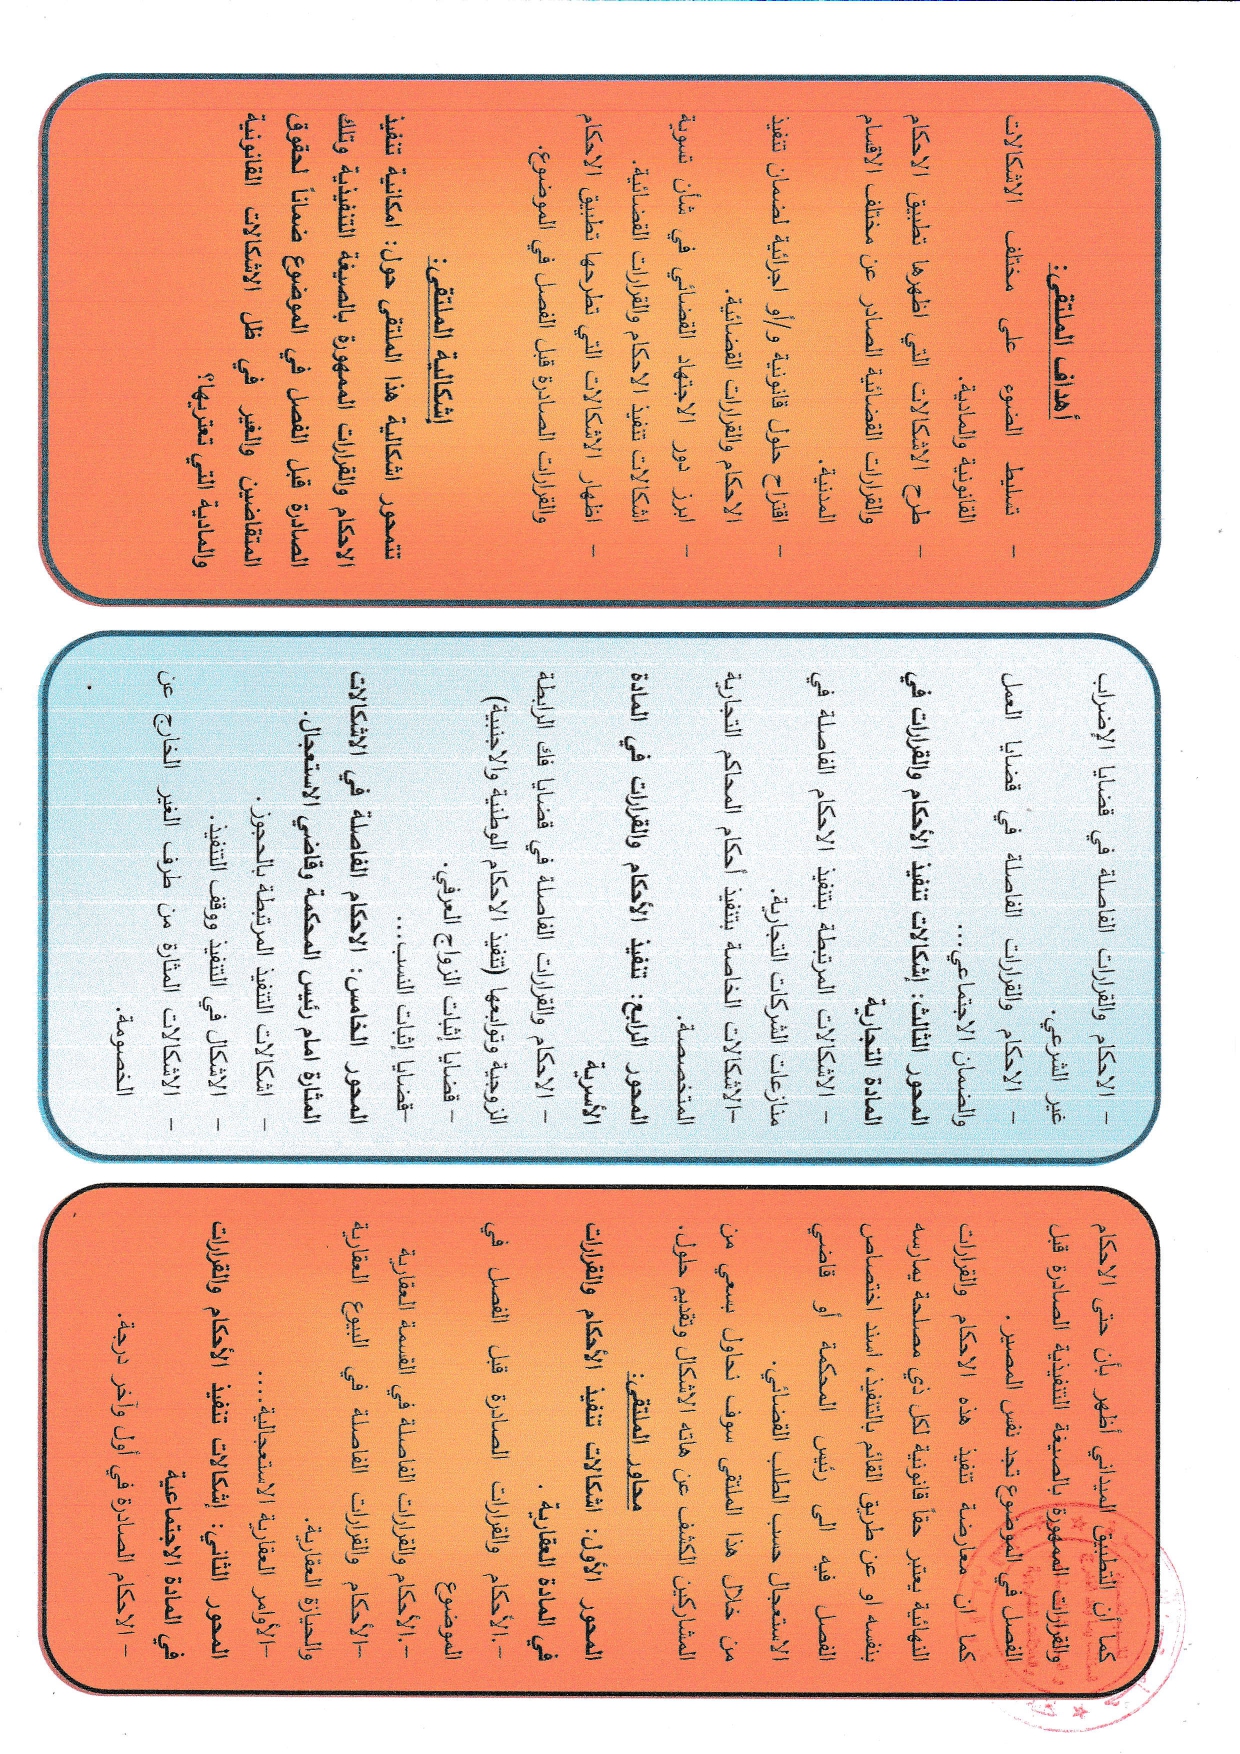 كما أن التطبيق الميداني أظهر بأن حتى الاحكام
والقرارات الممهورة بالصيغة التنفيذية الصادرة قبل
الفصل في الموضوع تجد نفس المصير.
كما ان معارضة تنفيذ هذه الاحكام والقرارات
النهائية يعتبر حقاً قانونية لكل ذي مصلحة يمارسه
بنفسه او عن طريق القائم بالتنفيذ، اسند اختصاص
الفصل فيه الى رئيس المحكمة أو قاضي
الاستعجال حسب الطلب القضائي.
من خلال هذا الملتقى سوف نحاول بسعي من
المشاركين الكشف عن هاته الاشكال وتقديم حلول.
محاور الملتقى:
المحور الأول: اشكالات تنفيذ الأحكام والقرارات
في المادة العقارية .
-.الأحكام والقرارات الصادرة قبل الفصل في
الموضوع
-.الأحكام والقرارات الفاصلة في القسمة العقارية
-الأحكام والقرارات الفاصلة في البيوع العقارية
والحيازة العقارية.
-الأوامر العقارية الاستعجالية....
المحور الثاني: إشكالات تنفيذ الأحكام والقرارات
في المادة الاجتماعية
- الاحكام الصادرة في أول وآخر درجة.
- الاحكام والقرارات الفاصلة في قضايا الإضراب
غير الشرعي.
- الاحكام والقرارات الفاصلة في قضايا العمل
والضمان الاجتماعي...
المحور الثالث: إشكالات تنفيذ الأحكام والقرارات في
المادة التجارية
- الاشكالات المرتبطة بتنفيذ الاحكام الفاصلة في
منازعات الشركات التجارية.
-الاشكالات الخاصة بتنفيذ أحكام المحاكم التجارية
المتخصصة.
المحور الرابع: تنفيذ الأحكام والقرارات في المادة
الأسرية
- الاحكام والقرارات الفاصلة في قضايا فك الرابطة
الزوجية وتوابعها (تنفيذ الاحكام الوطنية والاجنبية)
- قضايا إثبات الزواج العرفي.
-قضايا إثبات النسب...
المحور الخامس: الاحكام الفاصلة في الاشكالات
المثارة امام رئيس المحكمة وقاضي الاستعجال.
- اشكالات التنفيذ المرتبطة بالحجوز.
- الاشكال في التنفيذ ووقف التنفيذ.
- الاشكالات المثارة من طرف الغير الخارج عن
الخصومة.
أهداف الملتقى:
- تسليط الضوء على مختلف الاشكالات
القانونية والمادية.
- طرح الاشكالات التي اظهرها تطبيق الاحكام
والقرارات القضائية الصادر عن مختلف الاقسام
المدنية.
- اقتراح حلول قانونية و/أو اجرائية لضمان تنفيذ
الاحكام والقرارات القضائية.
- ابرز دور الاجتهاد القضائي في شأن تسوية
اشكالات تنفيذ الاحكام والقرارات القضائية.
- اظهار الاشكالات التي تطرحها تطبيق الاحكام
والقرارات الصادرة قبل الفصل في الموضوع.
إشكالية الملتقى:
تتمحور اشكالية هذا الملتقى حول: امكانية تنفيذ
الاحكام والقرارات الممهورة بالصيغة التنفيذية وتلك
الصادرة قبل الفصل في الموضوع ضماناً لحقوق
المتقاضين والغير في ظل الاشكالات القانونية
والمادية التي تعتريها؟